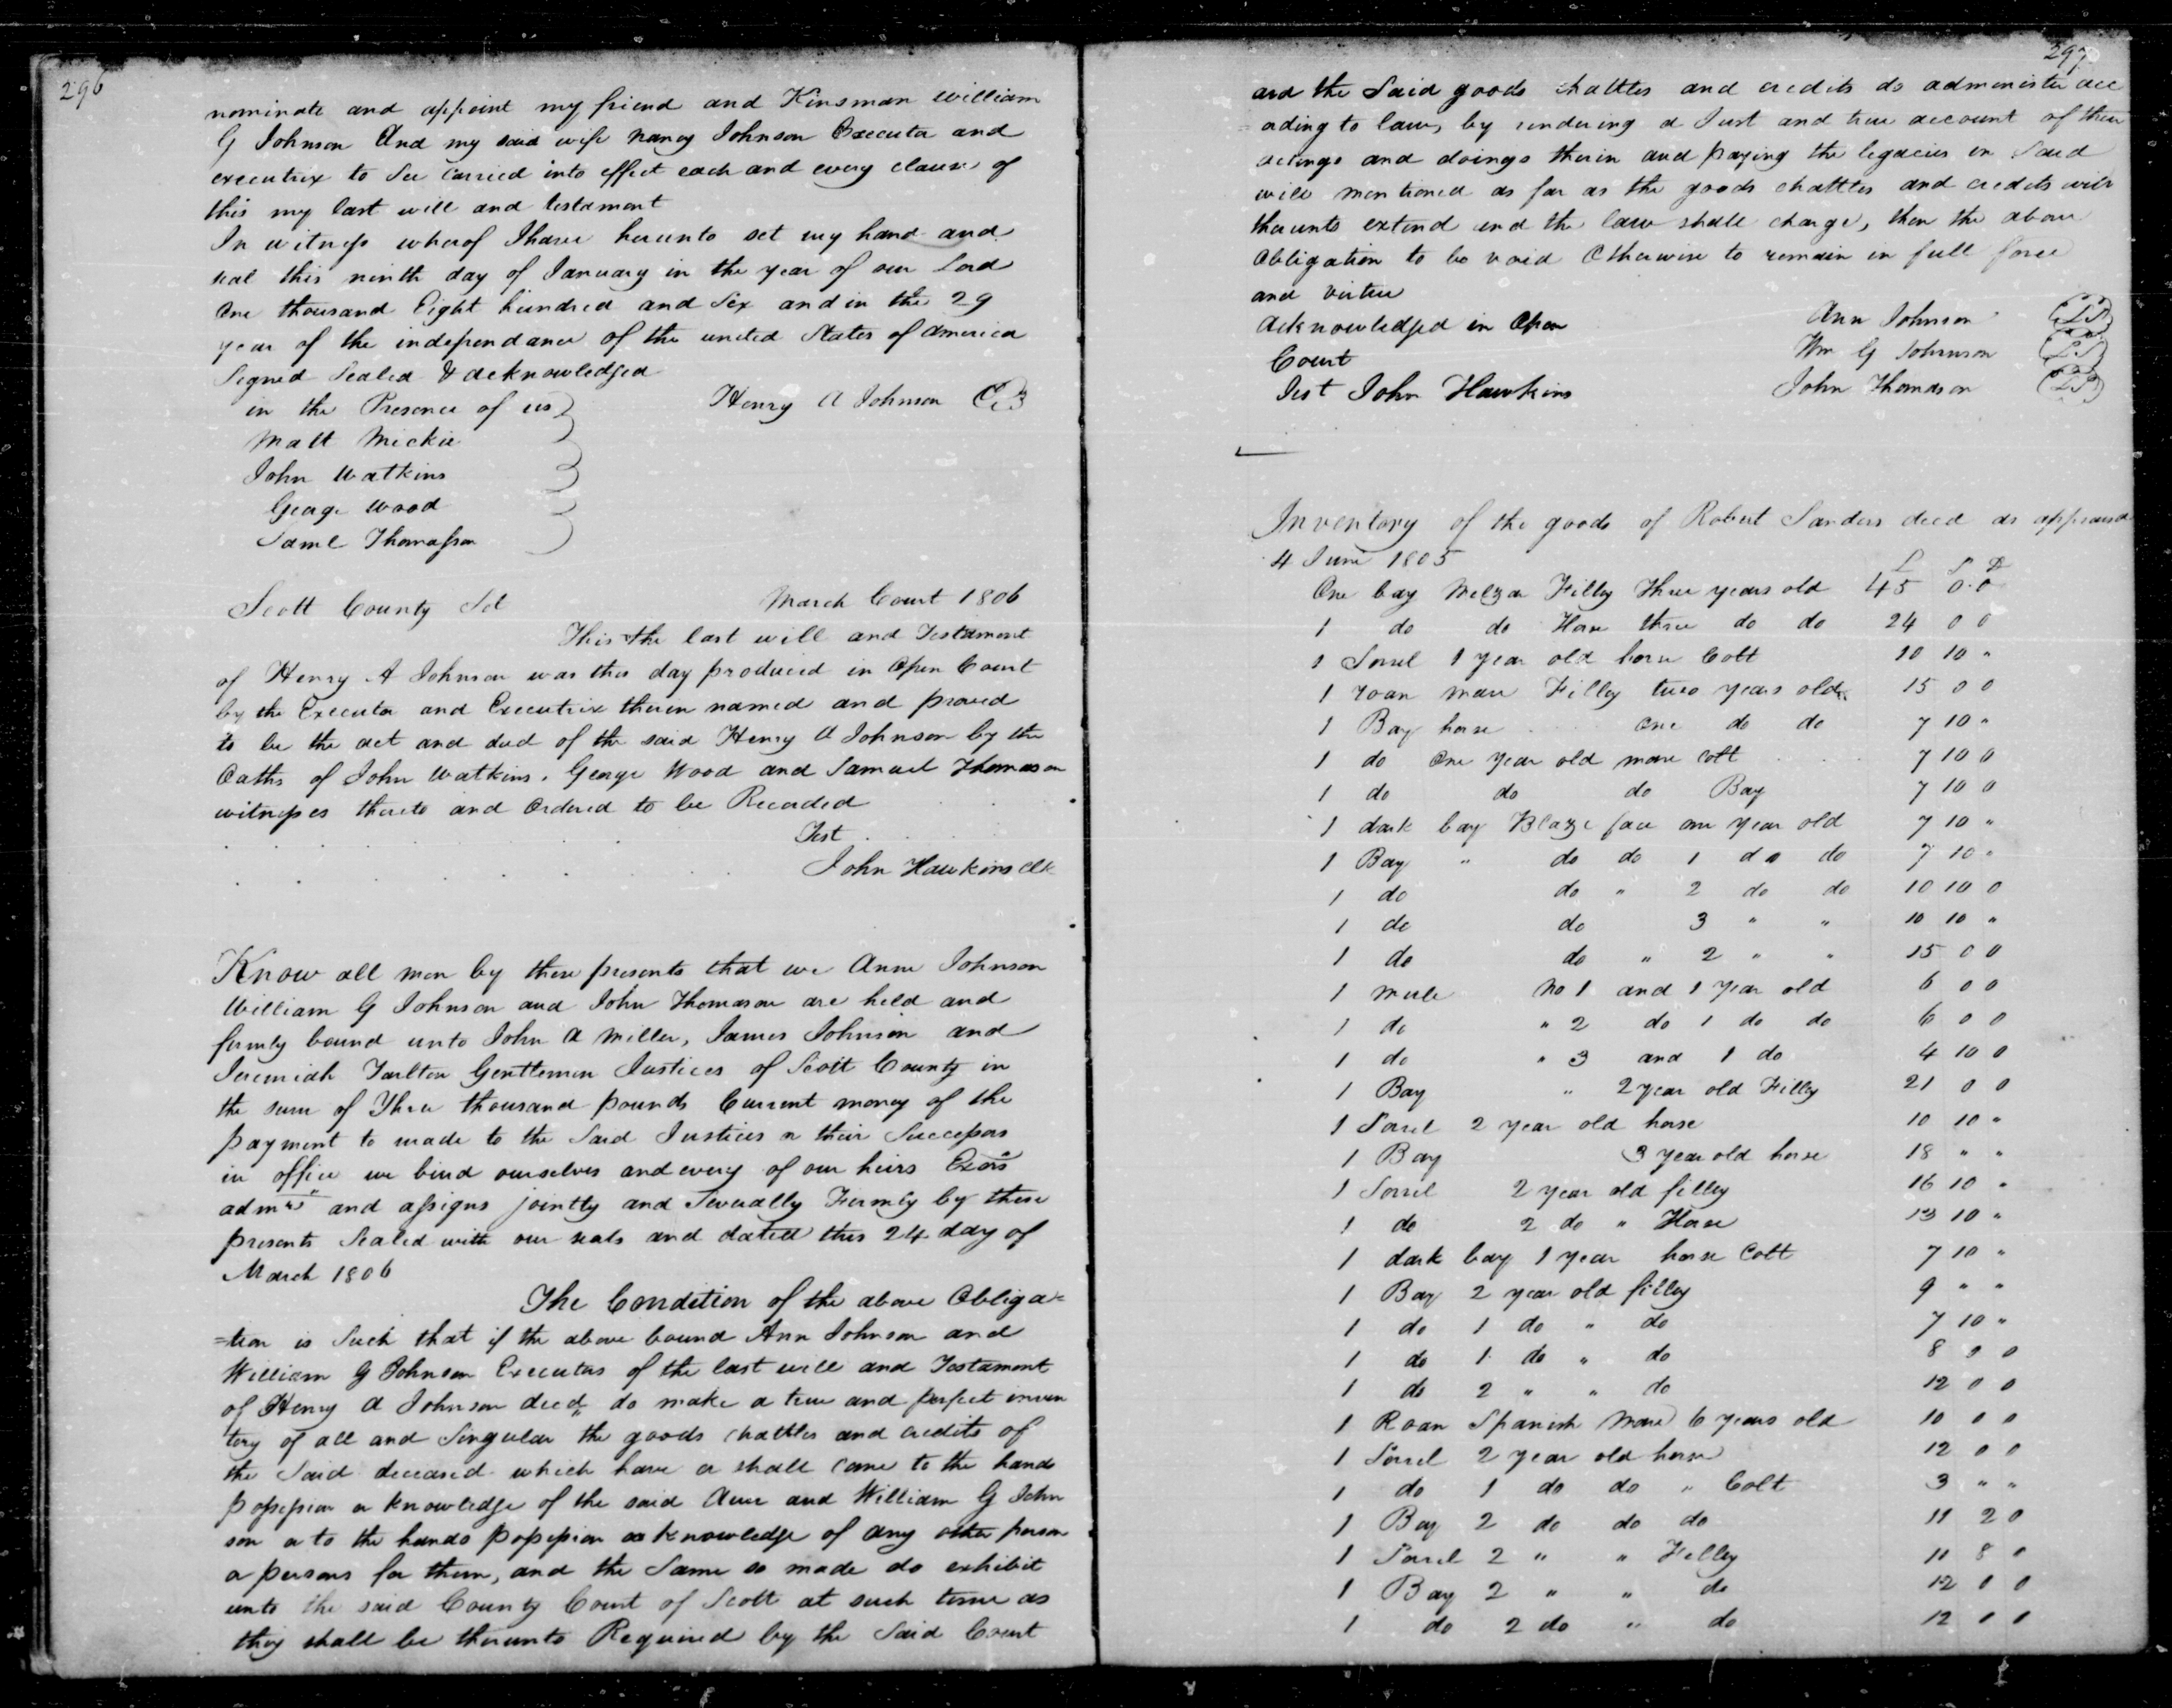 296
nominate and appoint my friend and Kinsman William
G Johnson And my said wife Nancy Johnson Executor and
executrix to See Carried into effect each and every clause of
this my last will and testament
In witness wherof I have hereunto set my hand and
seal this ninth day of January in the year of our Lord
One thousand Eight hundred and Six and in the 29
year of the independance of the united States of America
Signed Sealed & acknowledged
in the Presence of us
Henry A Johnson
Matt Mickie
John Watkins
George Wood
Saml Thomasson
Scott County Sct March Court 1806
This the last will and Testament
of Henry A Johnson was this day produced in Open Court
by the Executor and Executrix therein named and proved
to be the act and deed of the said Henry A Johnson by the
Oaths of John Watkins, George Wood and Samuel Thomason
witnesses thereto and Ordered to be Recorded
Test
John Hawkins Clk
Know all men by these presents that we Anne Johnson
William G Johnson and John Thomason are held and
firmly bound unto John A Miller, James Johnson and
Jeremiah Tarlton Gentlemen Justices of Scott County in
the sum of Three thousand pounds Current money of the
payment to made to the Said Justices or their Successors
in office we bind ourselves and every of our heirs Exors
admrs and assigns jointly and Severally Firmly by these
presents Sealed with our seals and dated this 24 day of
March 1806
The Condition of the above Obliga=
=tion is Such that if the above bound Ann Johnson and
William G Johnson Executors of the last will and Testament
of Henry A Johnson decd, do make a true and perfect inven
tory of all and Singular the goods chattles and credits of
the Said deceased which have or shall come to the hands
possession or knowledge of the said Ann and William G John
son or to the hands possession or knowledge of any other person
or persons for them, and the Same so made do exhibit
unto the said County Court of Scott at such time as
they shall be thereunto Required by the Said Court
297
and the Said goods chattles and credits do administer acc
=ording to law, by rendering a Just and true account of their
actings and doings therin and paying the legacies in Said
will mentioned as far as the goods chattles and credits will
thereunto extend and the law shall charge, then the above
Obligation to be void Otherwise to remain in full force
and virtue
Acknowledged in Open Ann Johnson
Court Wm G Johnson
Test John Hawkins John Thomason
Inventory of the goods of Robert Sanders decd as appraised
4 June 1805 L S D
One bay Melzar Filley Three years old 45 0 0
1 do do Horse three do do 24 0 0
1 Sorrel 1 year old horse Colt 10 10 "
1 roan mare Filley two years old 15 0 0
1 Bay horse One do do 7 10 "
1 do One year old mare Colt 7 10 0
1 do do do Bay 7 10 0
1 dark bay Blaze face one year old 7 10 "
1 Bay " do do 1 do do 7 10 "
1 do do " 2 do do 10 10 0
1 do do 3 " " 10 10 "
1 do do " 2 " " 15 0 0
1 mule No 1 and 1 year old 6 0 0
1 do " 2 do 1 do do 6 0 0
1 do " 3 and 1 do 4 10 0
1 Bay " 2 year old Filley 21 0 0
1 Sorrel 2 year old horse 10 10 "
1 Bay 3 year old horse 18 " "
1 Sorrel 2 year old filley 16 10 "
1 do 2 do " Horse 13 10 "
1 dark bay 1 year horse Colt 7 10 "
1 Bay 2 year old filley 9 " "
1 do 1 do " do 7 10 "
1 do 1 do " do 8 0 0
1 do 2 " " do 12 0 0
1 Roan Spanish Mare 6 years old 10 0 0
1 Sorrel 2 year old horse 12 0 0
1 do 1 do do " Colt 3 " "
1 Bay 2 do do do 11 2 0
1 Sorrel 2 " " Filley 11 8 0
1 Bay 2 " " do 12 0 0
1 do 2 do " do 12 0 0